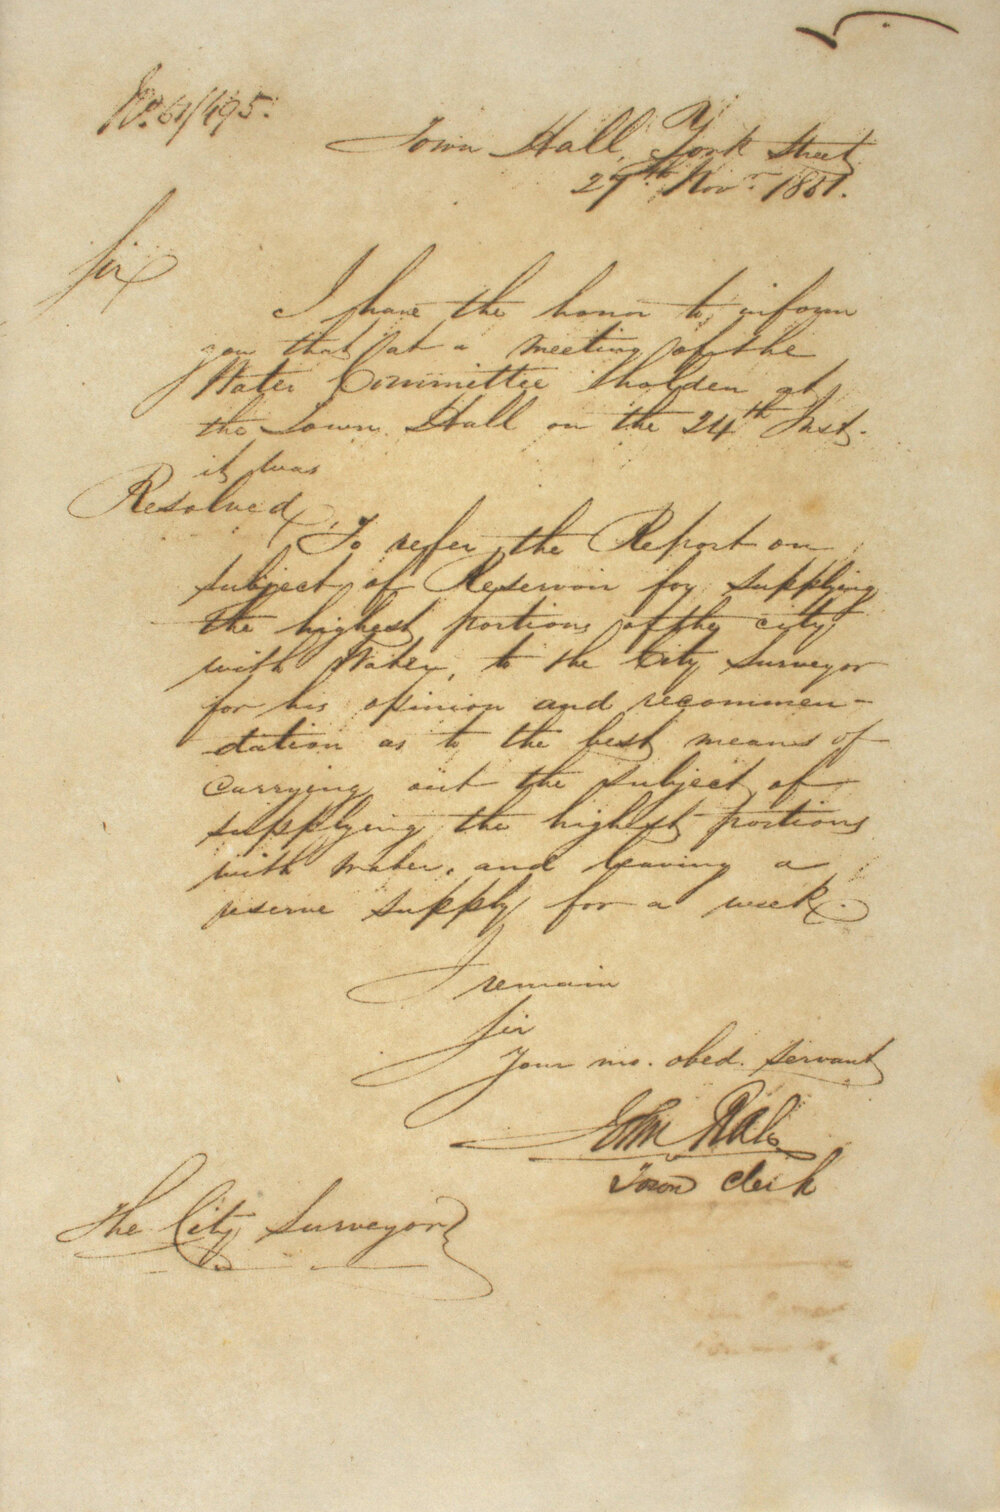 No. 61/495.
Town Hall, York Street
27th Novr. 1861.
Sir
I have the honor to inform
you that at a meeting of the
Water Committee holden at
the Town Hall on the 24th Inst.
it was
Resolved,
To refer the Report on
subject of Reservoir for supplying
the highest portions of the city
with Water, to the City Surveyor
for his opinion and recommen-
dation as to the best means of
carrying out the subject of
supplying the highest portions
with water, and leaving a
reserve supply for a week.
I remain
Sir
Your mo. obed. Servant
John Rae
Town Clerk
The City Surveyor